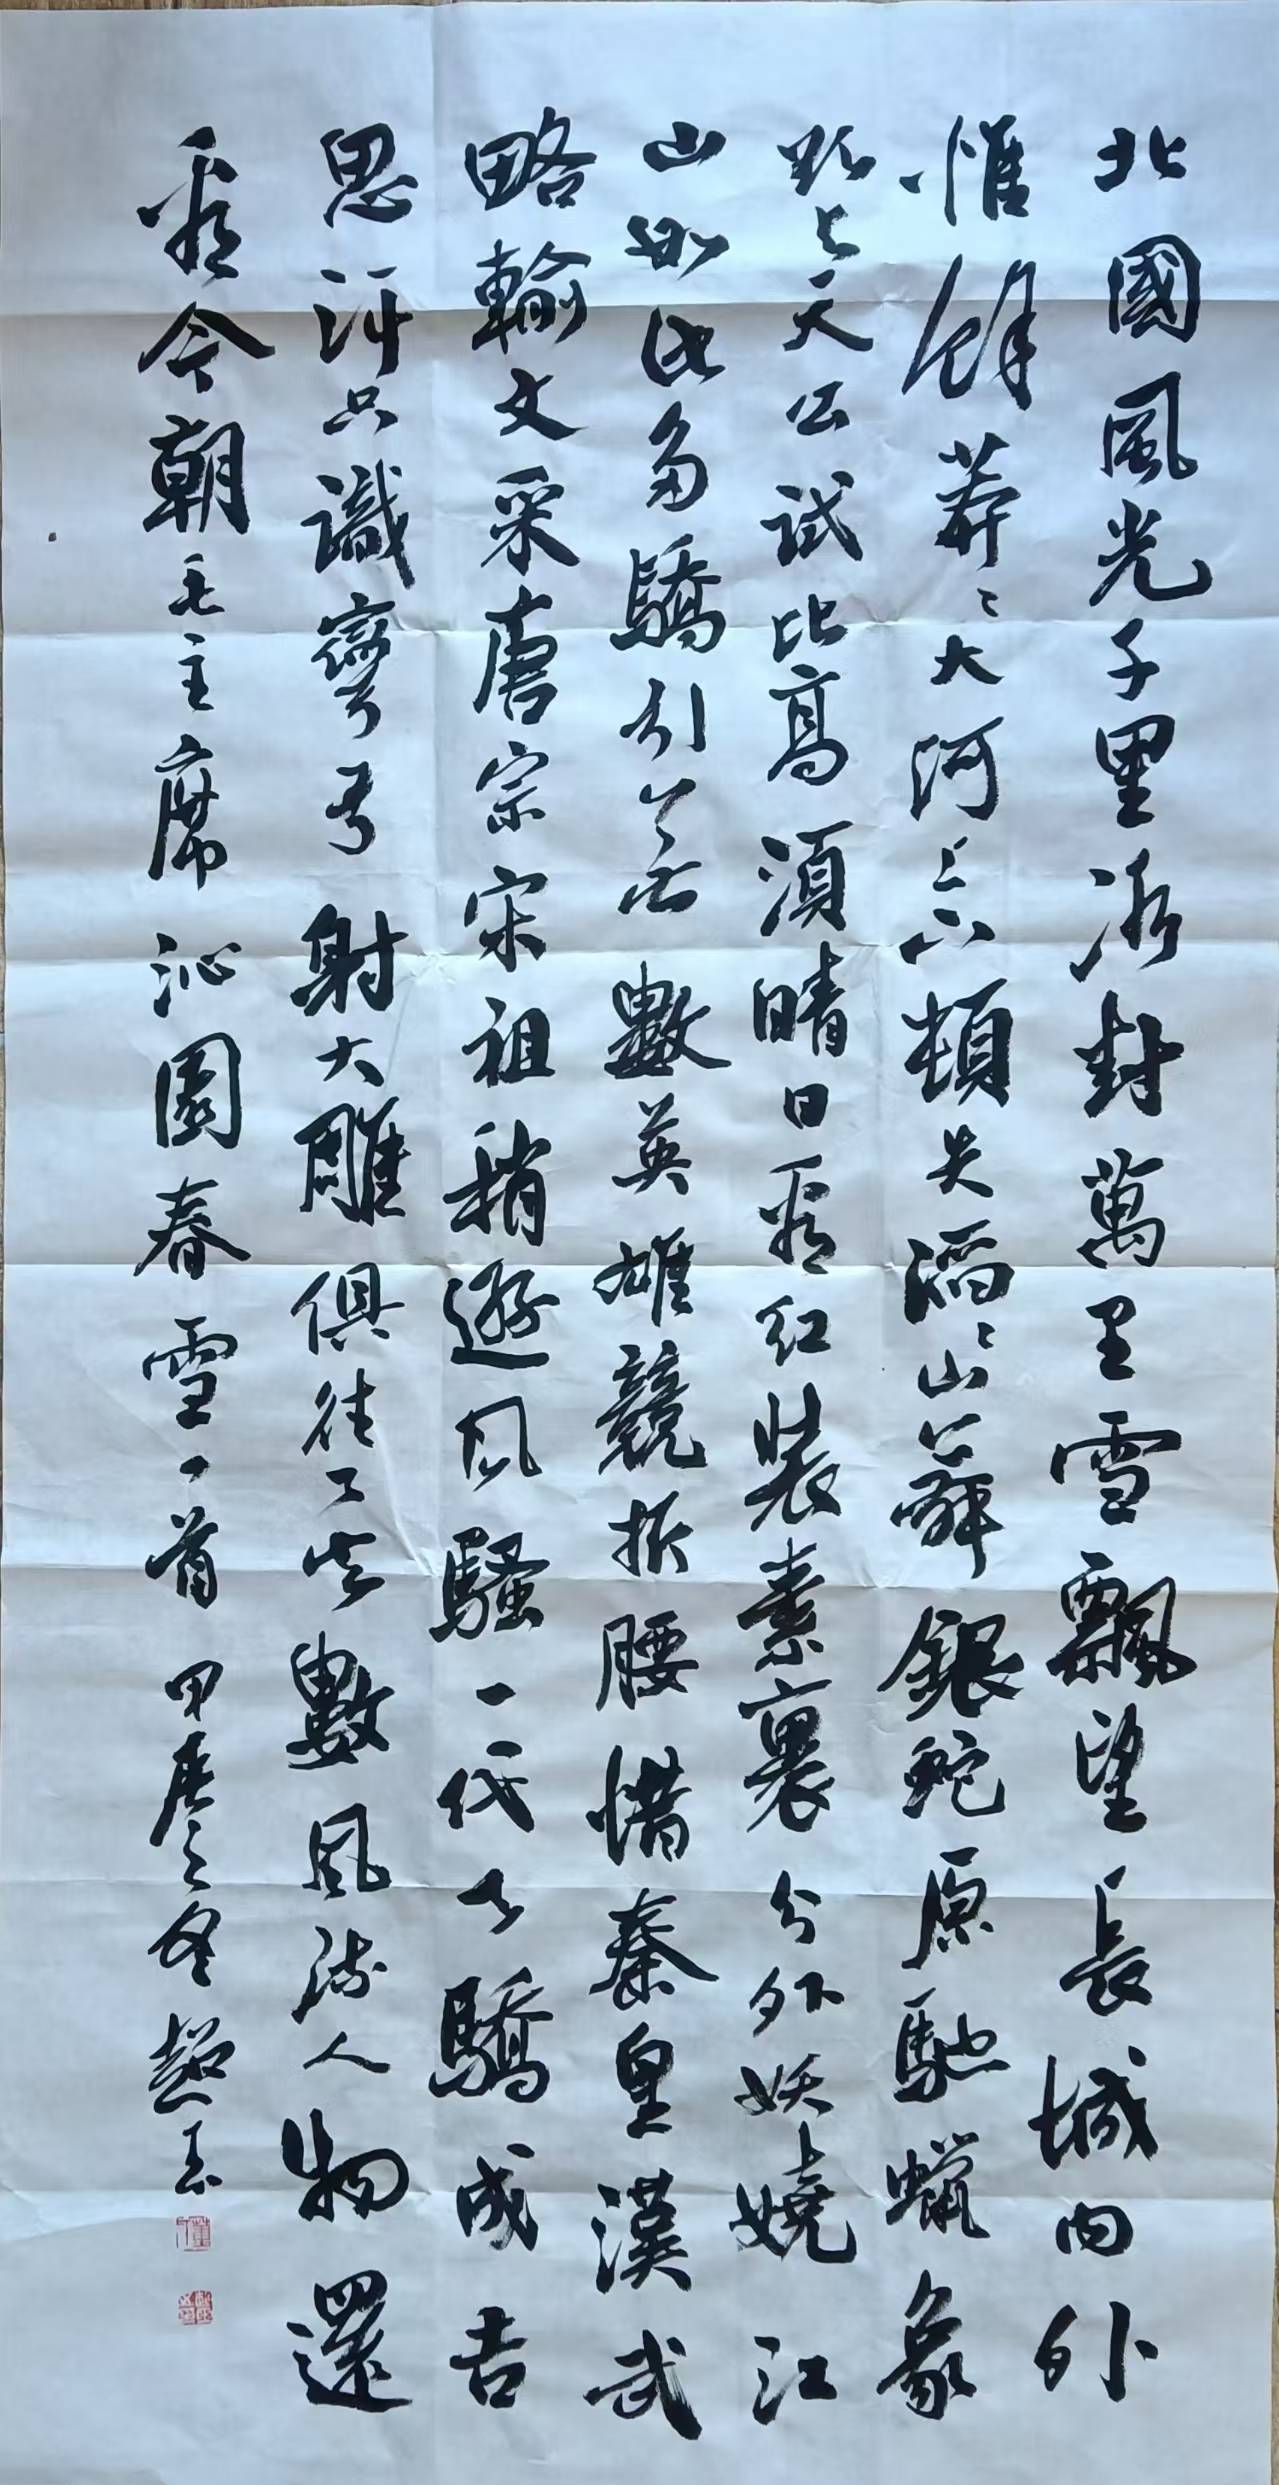 北國風光千里冰封萬里雪飄望長城內外
惟餘莽〻大河上下頓失滔〻山舞銀蛇原馳蠟象
欲與天公試比高須晴日看红裝素裹分外妖嬈江
山如此多驕引無數英雄競折腰惜秦皇漢武
略輸文采唐宗宋祖稍遜风騷一代天驕成吉
思汗只識彎弓射大雕俱往了矣數風流人物還
看今朝毛主席沁園春雪一首甲辰之冬